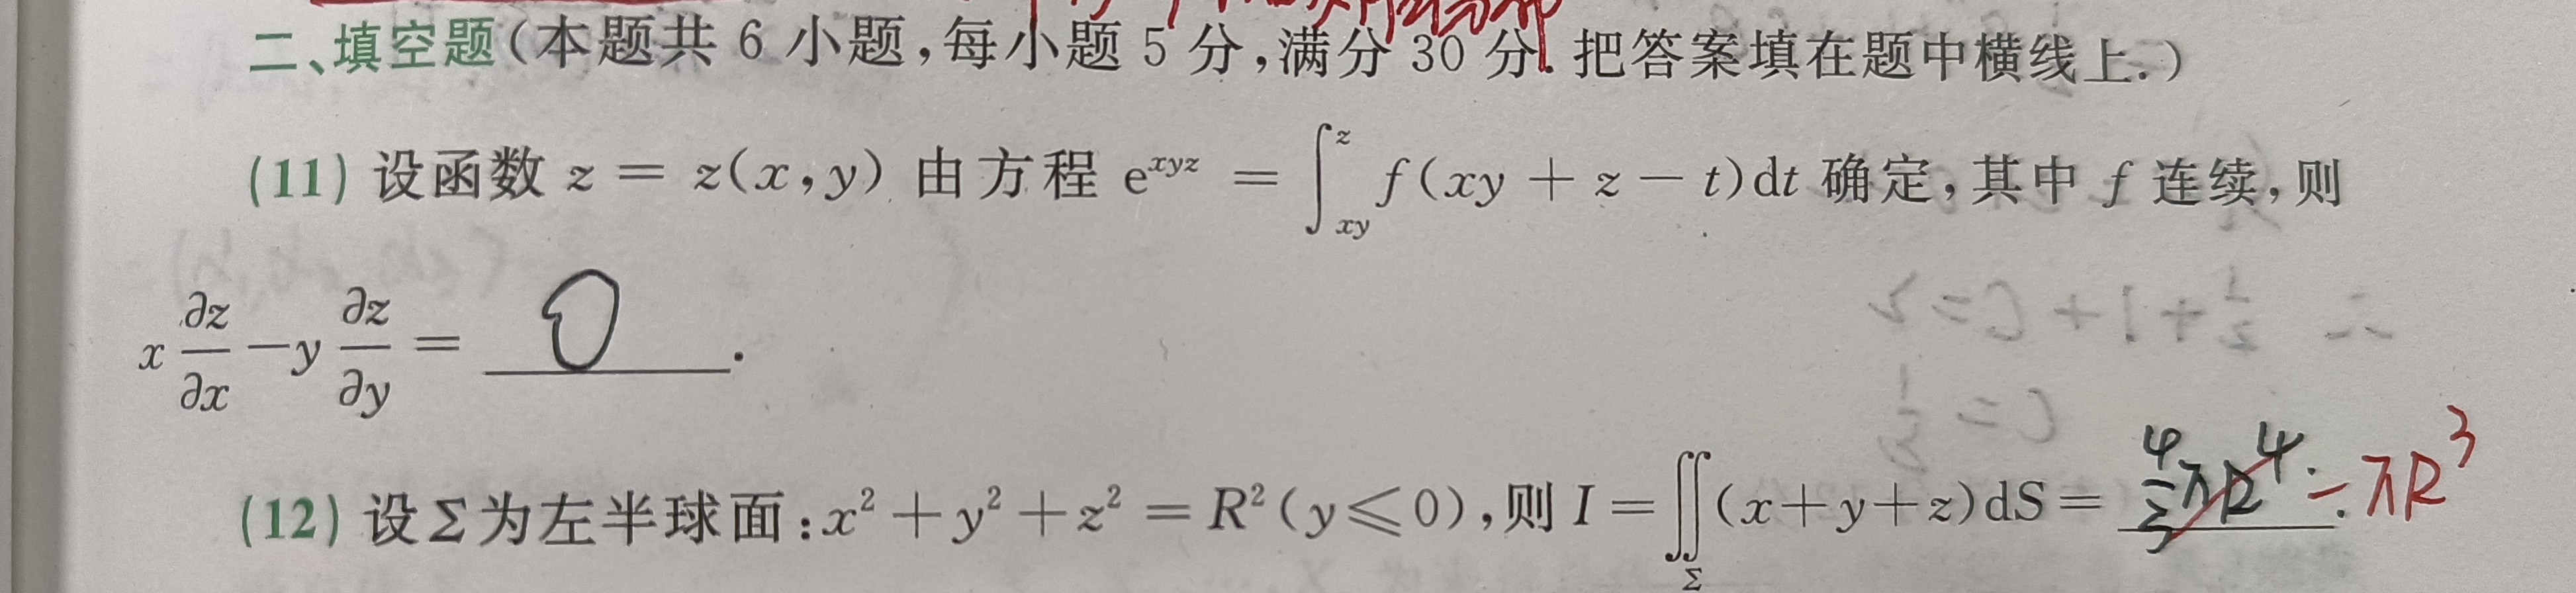 二、填空题(本题共 6 小题,每小题 5 分,满分 30 分. 把答案填在题中横线上.)
(11) 设函数 z = z(x,y) 由方程 e^{xyz} = ∫_{xy}^{z} f(xy + z − t)dt 确定,其中 f 连续,则
x ∂z/∂x − y ∂z/∂y = 0 .
(12) 设Σ为左半球面:x² + y² + z² = R²(y⩽0),则 I = ∬_Σ (x+y+z)dS = πR⁴. −πR³